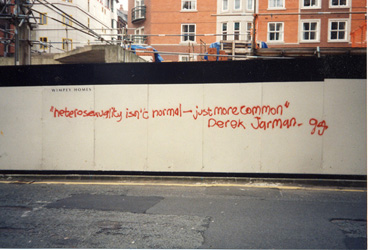 WIMPEY HOMES
"heterosexuality isn't normal — just more common"
Derek Jarman.